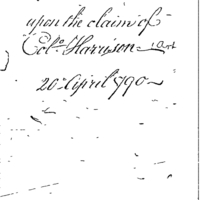 upon the claim of
Colo. Harrison
20 April 1790